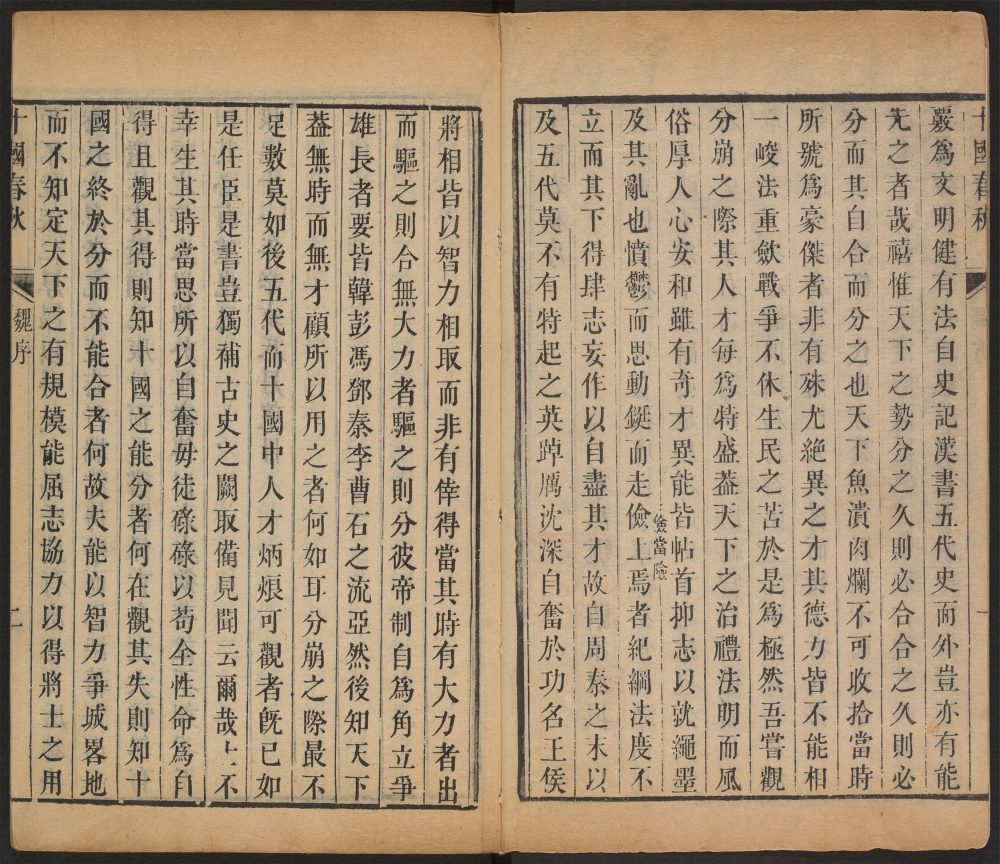 十國春秋
覈爲文明健有法自史記漢書五代史而外豈亦有能
先之者哉禧惟天下之勢分之久則必合合之久則必
分而其自合而分之也天下魚潰肉爛不可收拾當時
所號爲豪傑者非有殊尤絶異之才其德力皆不能相
一峻法重斂戰爭不休生民之苦於是爲極然吾嘗觀
分崩之際其人才每爲特盛葢天下之治禮法明而風
俗厚人心安和雖有奇才異能皆帖首抑志以就繩墨
及其亂也憤鬱而思動鋌而走儉上焉者紀綱法度不
儉當險
立而其下得肆志妄作以自盡其才故自周秦之末以
及五代莫不有特起之英踔厲沈深自奮於功名王侯
將相皆以智力相取而非有倖得當其時有大力者出
而驅之則合無大力者驅之則分彼帝制自爲角立爭
雄長者要皆韓彭馮鄧秦李曹石之流亞然後知天下
葢無時而無才顧所以用之者何如耳分崩之際最不
足數莫如後五代而十國中人才炳烺可觀者旣已如
是任臣是書豈獨補古史之闕取備見聞云爾哉士不
幸生其時當思所以自奮毋徒碌碌以苟全性命爲自
得且觀其得則知十國之能分者何在觀其失則知十
國之終於分而不能合者何故夫能以智力爭城畧地
而不知定天下之有規模能屈志協力以得將士之用
十國春秋
魏序
二